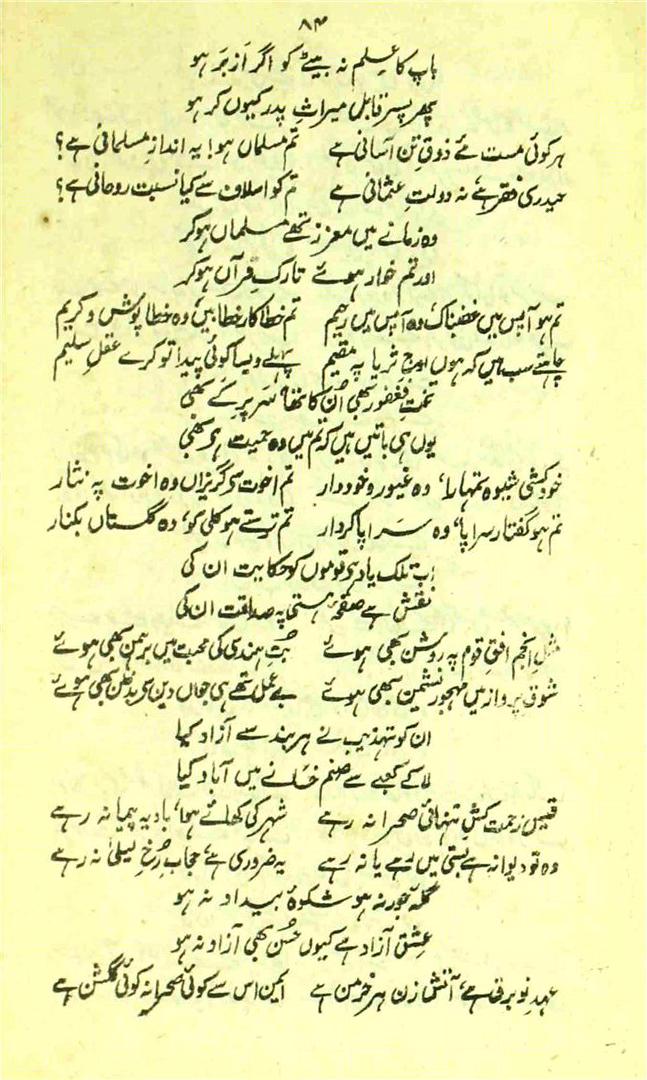 ۸۴
باپ کا علم نہ بیٹے کو اگر ازبر ہو
پھر پسر قابل میراثِ پدر کیوں کر ہو
ہر کوئی مست مئے ذوقِ تن آسانی ہے تم مسلماں ہو! یہ اندازِ مسلمانی ہے؟
حیدری فقر ہے نہ دولتِ عثمانی ہے تم کو اسلاف سے کیا نسبت روحانی ہے؟
وہ زمانے میں معزز تھے مسلماں ہوکر
اور تم خوار ہوئے تارکِ قرآں ہوکر
تم ہو آپس میں غضبناک، وہ آپس میں رحیم تم خطاکار خطابیں، وہ خطا پوش و کریم
چاہتے سب ہیں کہ ہوں اوجِ ثریا پہ مقیم پہلے ویسا کوئی پیدا تو کرے عقلِ سلیم
تختِ فغفور بھی اُن کا تھا، سریرِ کَے بھی
یوں ہی باتیں ہیں کہ تم میں وہ حمیت ہے بھی
خودکشی شیوہ تمہارا، وہ غیور و خوددار تم اخوت سے گریزاں وہ اخوت پہ نثار
تم ہو گفتار سراپا، وہ سراپا کردار تم ترستے ہو کلی کو، وہ گلستاں بکنار
اب تلک یاد ہے قوموں کو حکایت ان کی
نقش ہے صفحۂ ہستی پہ صداقت ان کی
مثلِ انجم افقِ قوم پہ روشن بھی ہوئے بُتِ ہندی کی محبت میں برہمن بھی ہوئے
شوقِ پرواز میں مہجورِ نشیمن بھی ہوئے بے عمل تھے ہی جواں دین سے بدظن بھی ہوئے
ان کو تہذیب نے ہر بند سے آزاد کیا
لا کے کعبے سے صنم خانے میں آباد کیا
قیس زحمت کشِ تنہائی صحرا نہ رہے شہر کی کھائے ہوا، بادیہ پیما نہ رہے
وہ تو دیوانہ ہے بستی میں رہے یا نہ رہے یہ ضروری ہے، حجابِ رُخِ لیلیٰ نہ رہے
گلۂ جور نہ ہو شکوۂ بیداد نہ ہو
عشق آزاد ہے کیوں حُسن بھی آزاد نہ ہو
عہدِ نو برق ہے، آتش زنِ ہر خرمن ہے ایمن اس سے کوئی صحرا نہ کوئی گلشن ہے